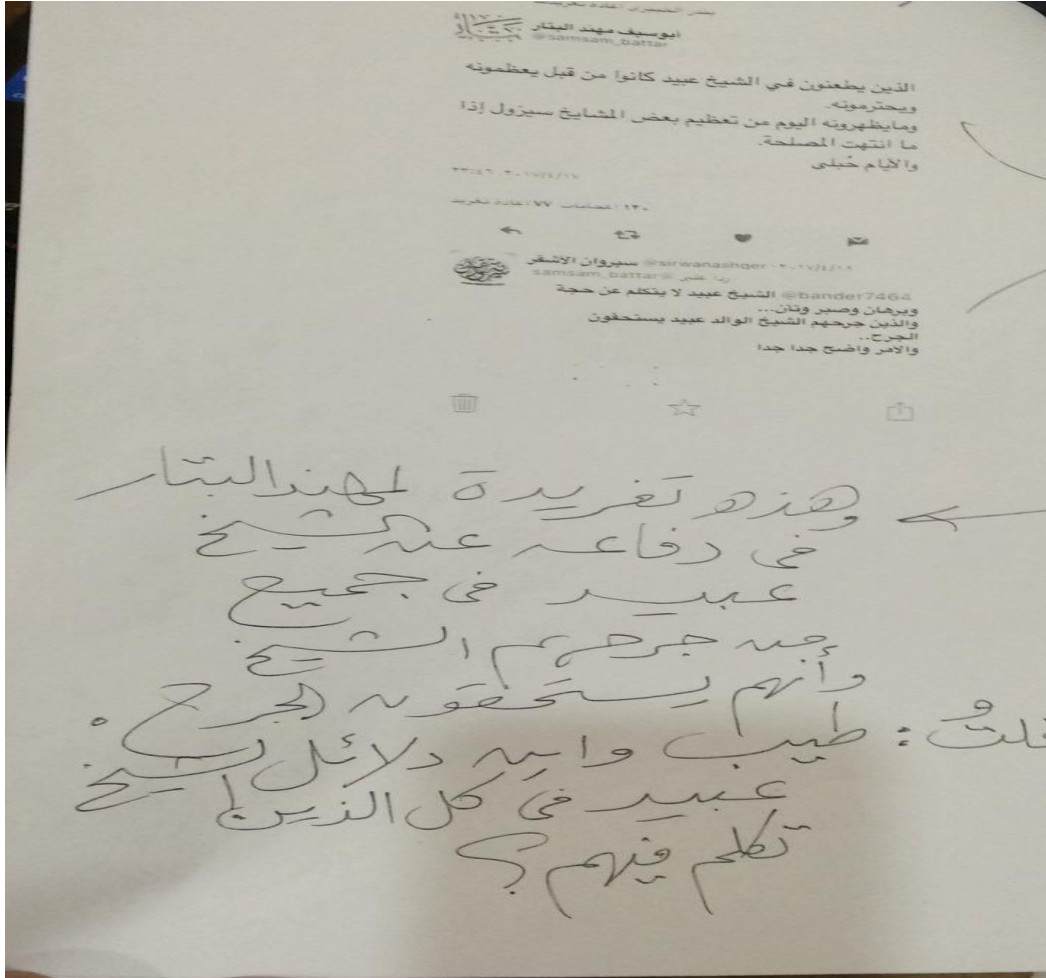 بندر الخيبري أعاد تغريد
أبوسيف مهند البتار
@samsam_battar
الذين يطعنون في الشيخ عبيد كانوا من قبل يعظمونه
ويحترمونه.
ومايظهرونه اليوم من تعظيم بعض المشايخ سيزول إذا
ما انتهت المصلحة.
والأيام حُبلى
٢٠١٧/٤/١٧ ٢٣:٤٦
٧٧ إعادة تغريد
سيروان الأشقر @sirwanashqer ٢٠١٧/٤/١٨
@samsam_battar
@bander7464 الشيخ عبيد لا يتكلم عن حجة
وبرهان وصبر وتأن...
والذين جرحهم الشيخ الوالد عبيد يستحقون
الجرح..
والأمر واضح جدا جدا
وهذه تغريدة لمهند البتار
في دفاعه عن الشيخ
عبيد في جميع
من جرحهم الشيخ
وأنهم يستحقون الجرح.
قلتُ: طيب وأين دلائل الشيخ
عبيد في كل الذين
تكلم فيهم؟